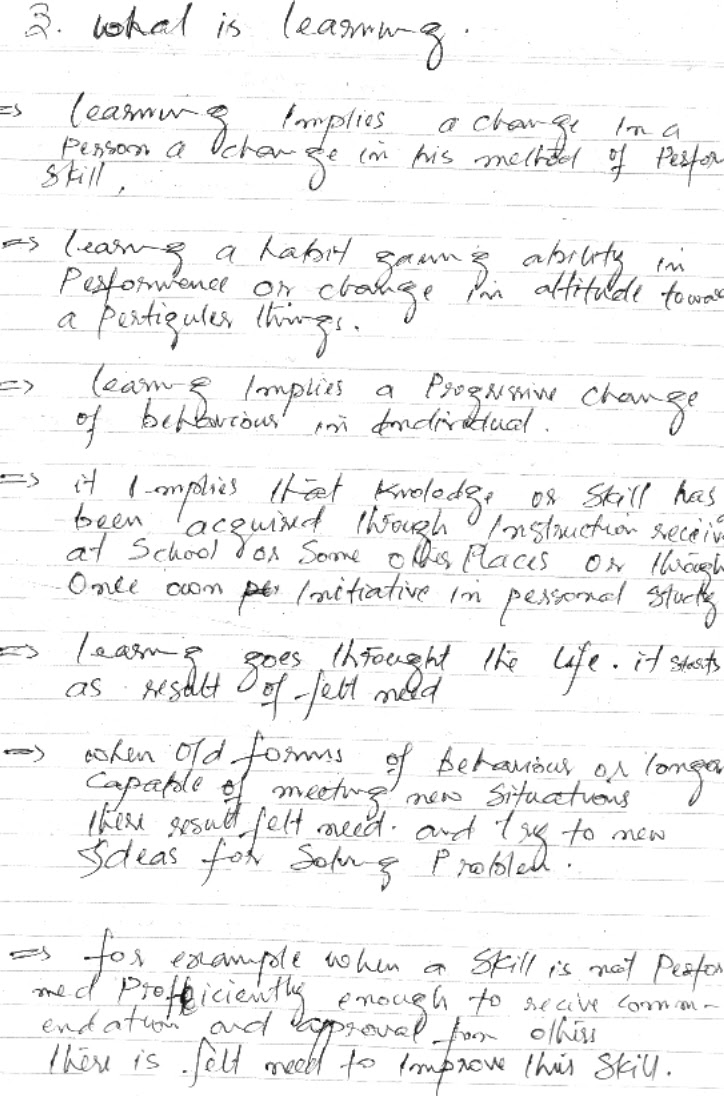 3. what is learning.
=> learning Implies a change In a
Person a change in his method of Perfor
Skill,
=> learng a habit gaung ability in
Performence or change in attitude towar
a Pertiguler things.
=> learng Implies a Progressive change
of behaviour in Individual.
=> it Implies that Knolodge or Skill has
been acquired through Instruction receiv
at School or Some other Places or through
Once own Initiative in personal study
=> learng goes throught the life. it starts
as result of felt need
=> when Old forms of behaviour or longer
Capable of meeting new Situations
there result felt need. and try to new
Ideas for Solvng Problem.
=> for example when a Skill is not Perfor
med Profficiently enough to recive comm-
endation and approval from others
there is felt need to Improve this Skill.